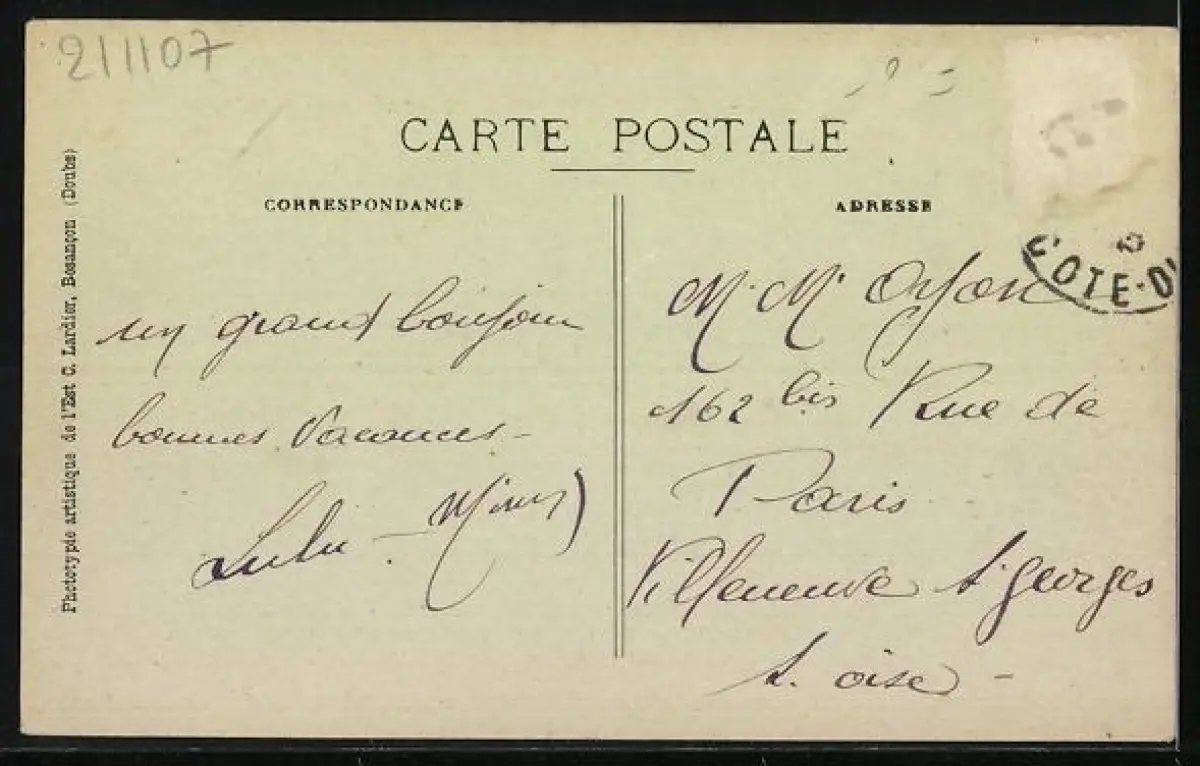 211107
CARTE POSTALE
CORRESPONDANCE
ADRESSE
Phototypie artistique de l'Est C. Lardier, Besançon (Doubs)
COTE-D'
un grand bonjour
bonnes vacances -
Lulu - 
M. Mr
162 bis Rue de
Paris
Villeneuve St Georges
S. oise -